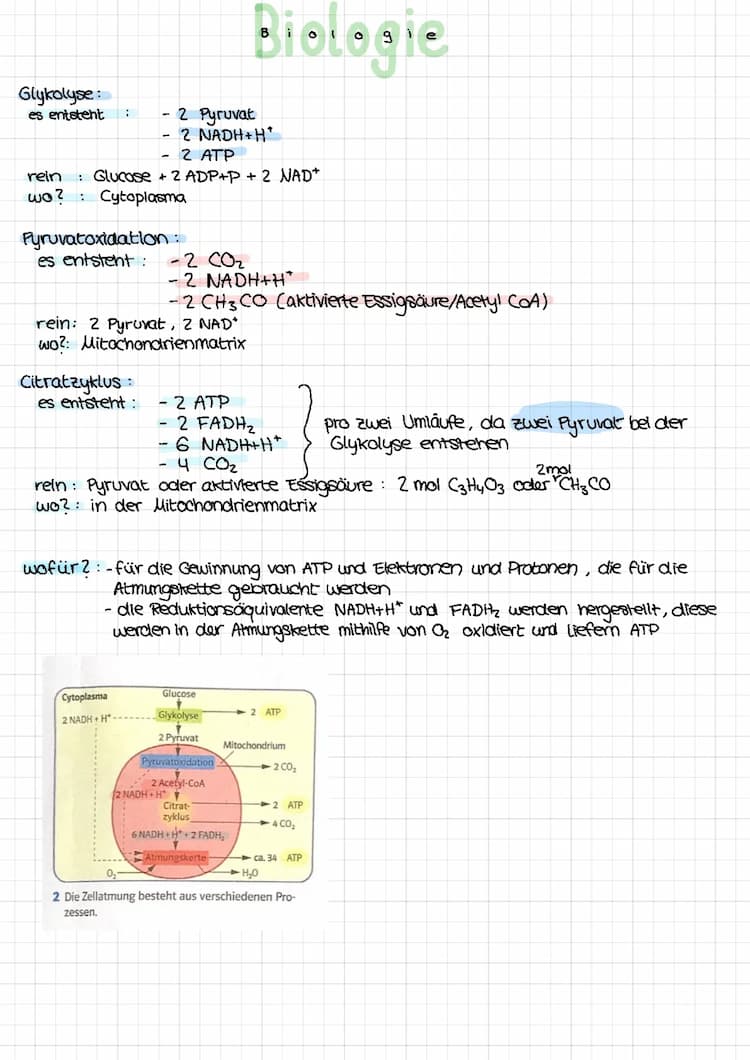 Biologie
Biologie
Glykolyse:
es entsteht : - 2 Pyruvat
- 2 NADH+H⁺
- 2 ATP
rein : Glucose + 2 ADP+P + 2 NAD⁺
wo? : Cytoplasma
Pyruvatoxidation:
es entsteht : - 2 CO₂
- 2 NADH+H⁺
- 2 CH₃CO (aktivierte Essigsäure/Acetyl CoA)
rein: 2 Pyruvat, 2 NAD⁺
wo?: Mitochondrienmatrix
Citratzyklus:
es entsteht : - 2 ATP
- 2 FADH₂
- 6 NADH+H⁺
- 4 CO₂
pro zwei Umläufe, da zwei Pyruvat bei der
Glykolyse entstehen
rein : Pyruvat oder aktivierte Essigsäure : 2 mol C₃H₄O₃ oder 2mol CH₃CO
wo? : in der Mitochondrienmatrix
wofür? : - für die Gewinnung von ATP und Elektronen und Protonen, die für die
Atmungskette gebraucht werden
- die Reduktionsäquivalente NADH+H⁺ und FADH₂ werden hergestellt, diese
werden in der Atmungskette mithilfe von O₂ oxidiert und liefern ATP
Cytoplasma
Glucose
2 NADH + H⁺
Glykolyse
2 ATP
2 Pyruvat
Mitochondrium
Pyruvatoxidation
2 CO₂
2 Acetyl-CoA
2 NADH + H⁺
Citrat-
zyklus
2 ATP
4 CO₂
6 NADH + H⁺ + 2 FADH₂
Atmungskette
ca. 34 ATP
O₂
H₂O
2 Die Zellatmung besteht aus verschiedenen Pro-
zessen.